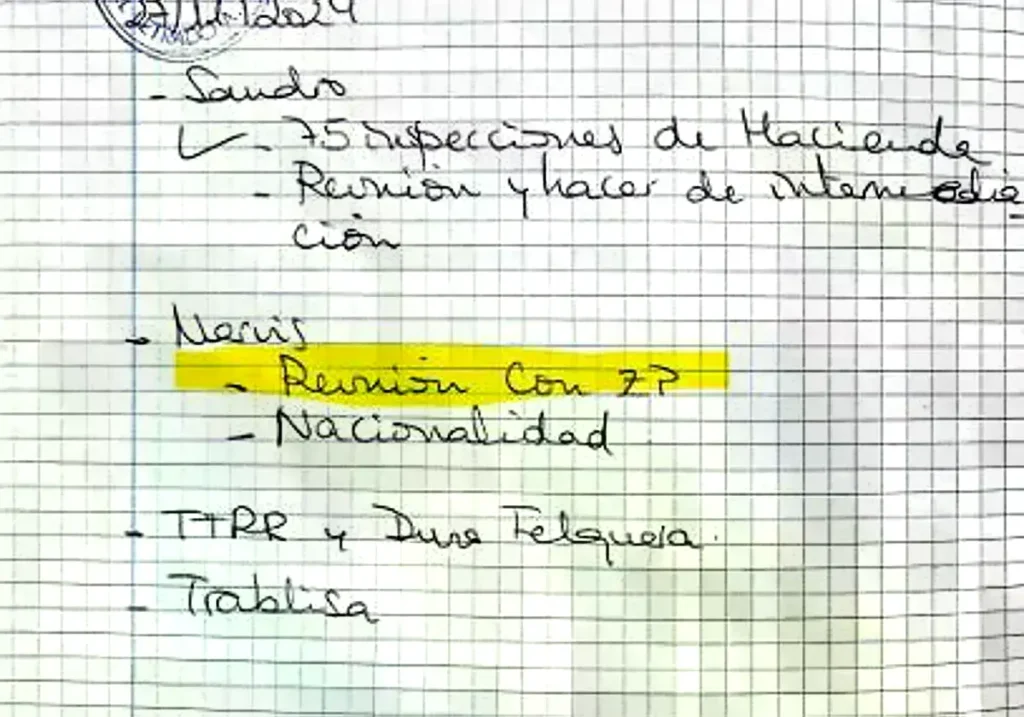 27/11/2024
- Sandro
- 75 inspecciones de Hacienda
- Reunión y hacer de intermedia-
ción
- Nervis
- Reunión Con ZP
- Nacionalidad
- TTRR y Duro Felguera.
- Trablisa